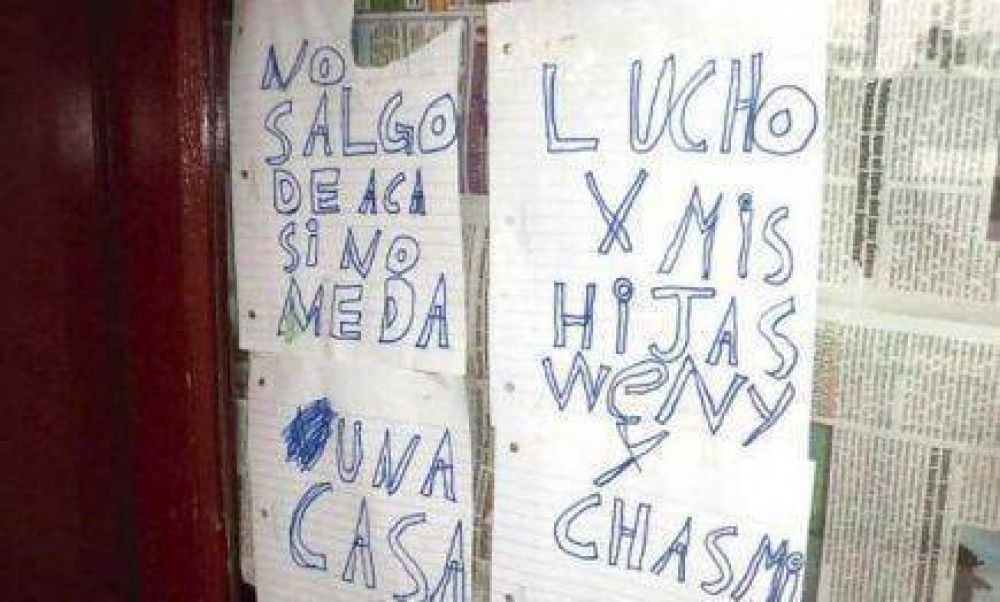 NO
SALGO
DE ACA
Si NO
ME DA
UNA
CASA
LUCHO
X MiS
HiJAS
WeNy
Y
CHASMi